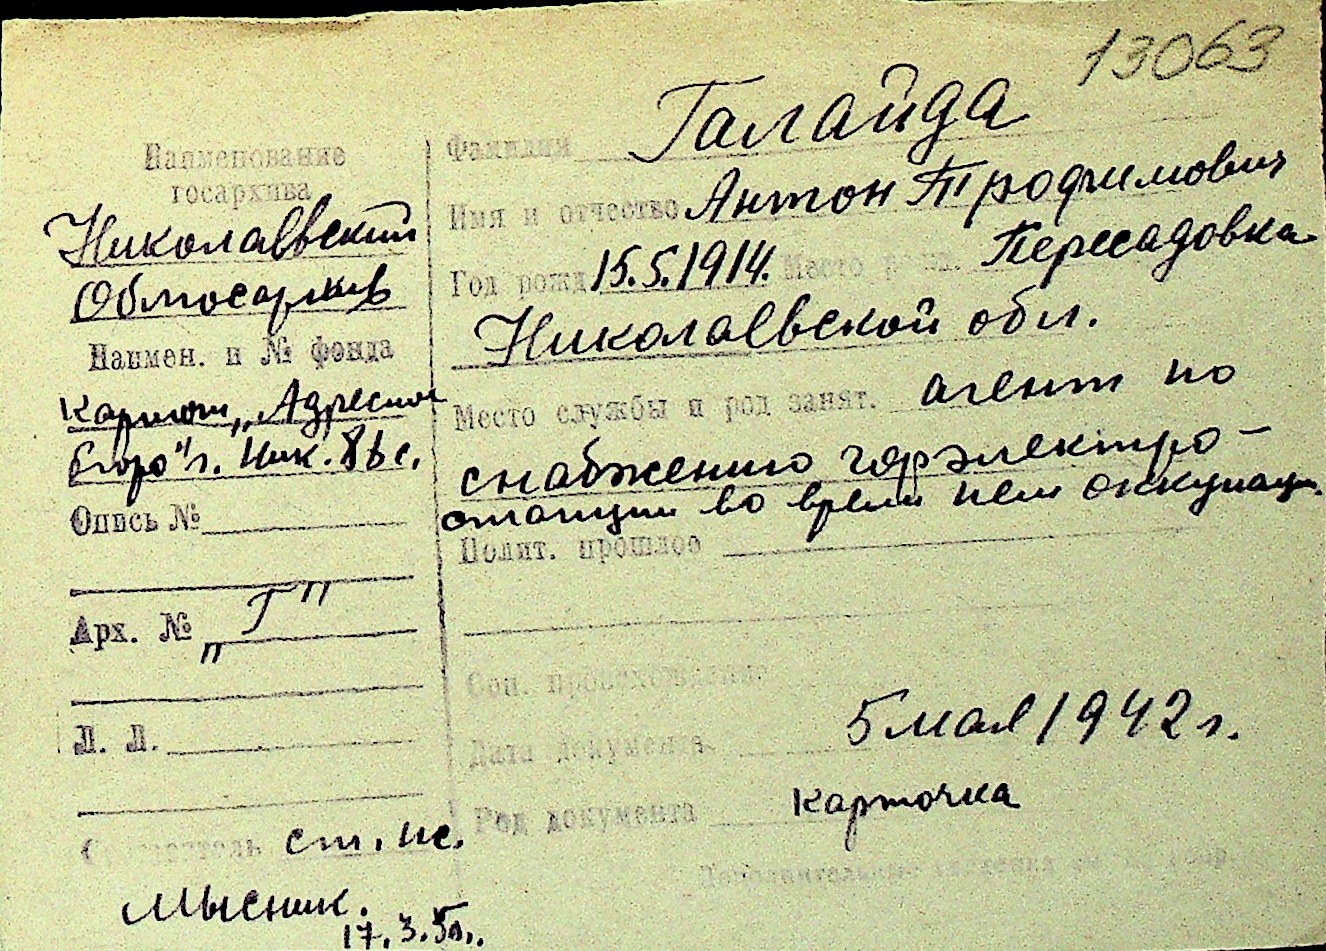 13063
Наименование
госархива
Николаевский
Облгосархив
Наимен. и № фонда
Картот. „Адресное
бюро" г. Ник.
Опись №
Арх. № „Г"
Л. Л.
ст. н.с.
Мысник.
17.3.50.
Фамилия Галайда
Имя и отчество Антон Трофимович
Год рожд. 15.5.1914. Место рожд. Пересадовка
Николаевской обл.
Место службы и род занят. агент по
снабжению горэлектро-
станции во время нем оккупации.
Полит. прошлое
Соц. происхождение
Дата документа 5 мая 1942 г.
Род документа карточка
Дополнительные сведения